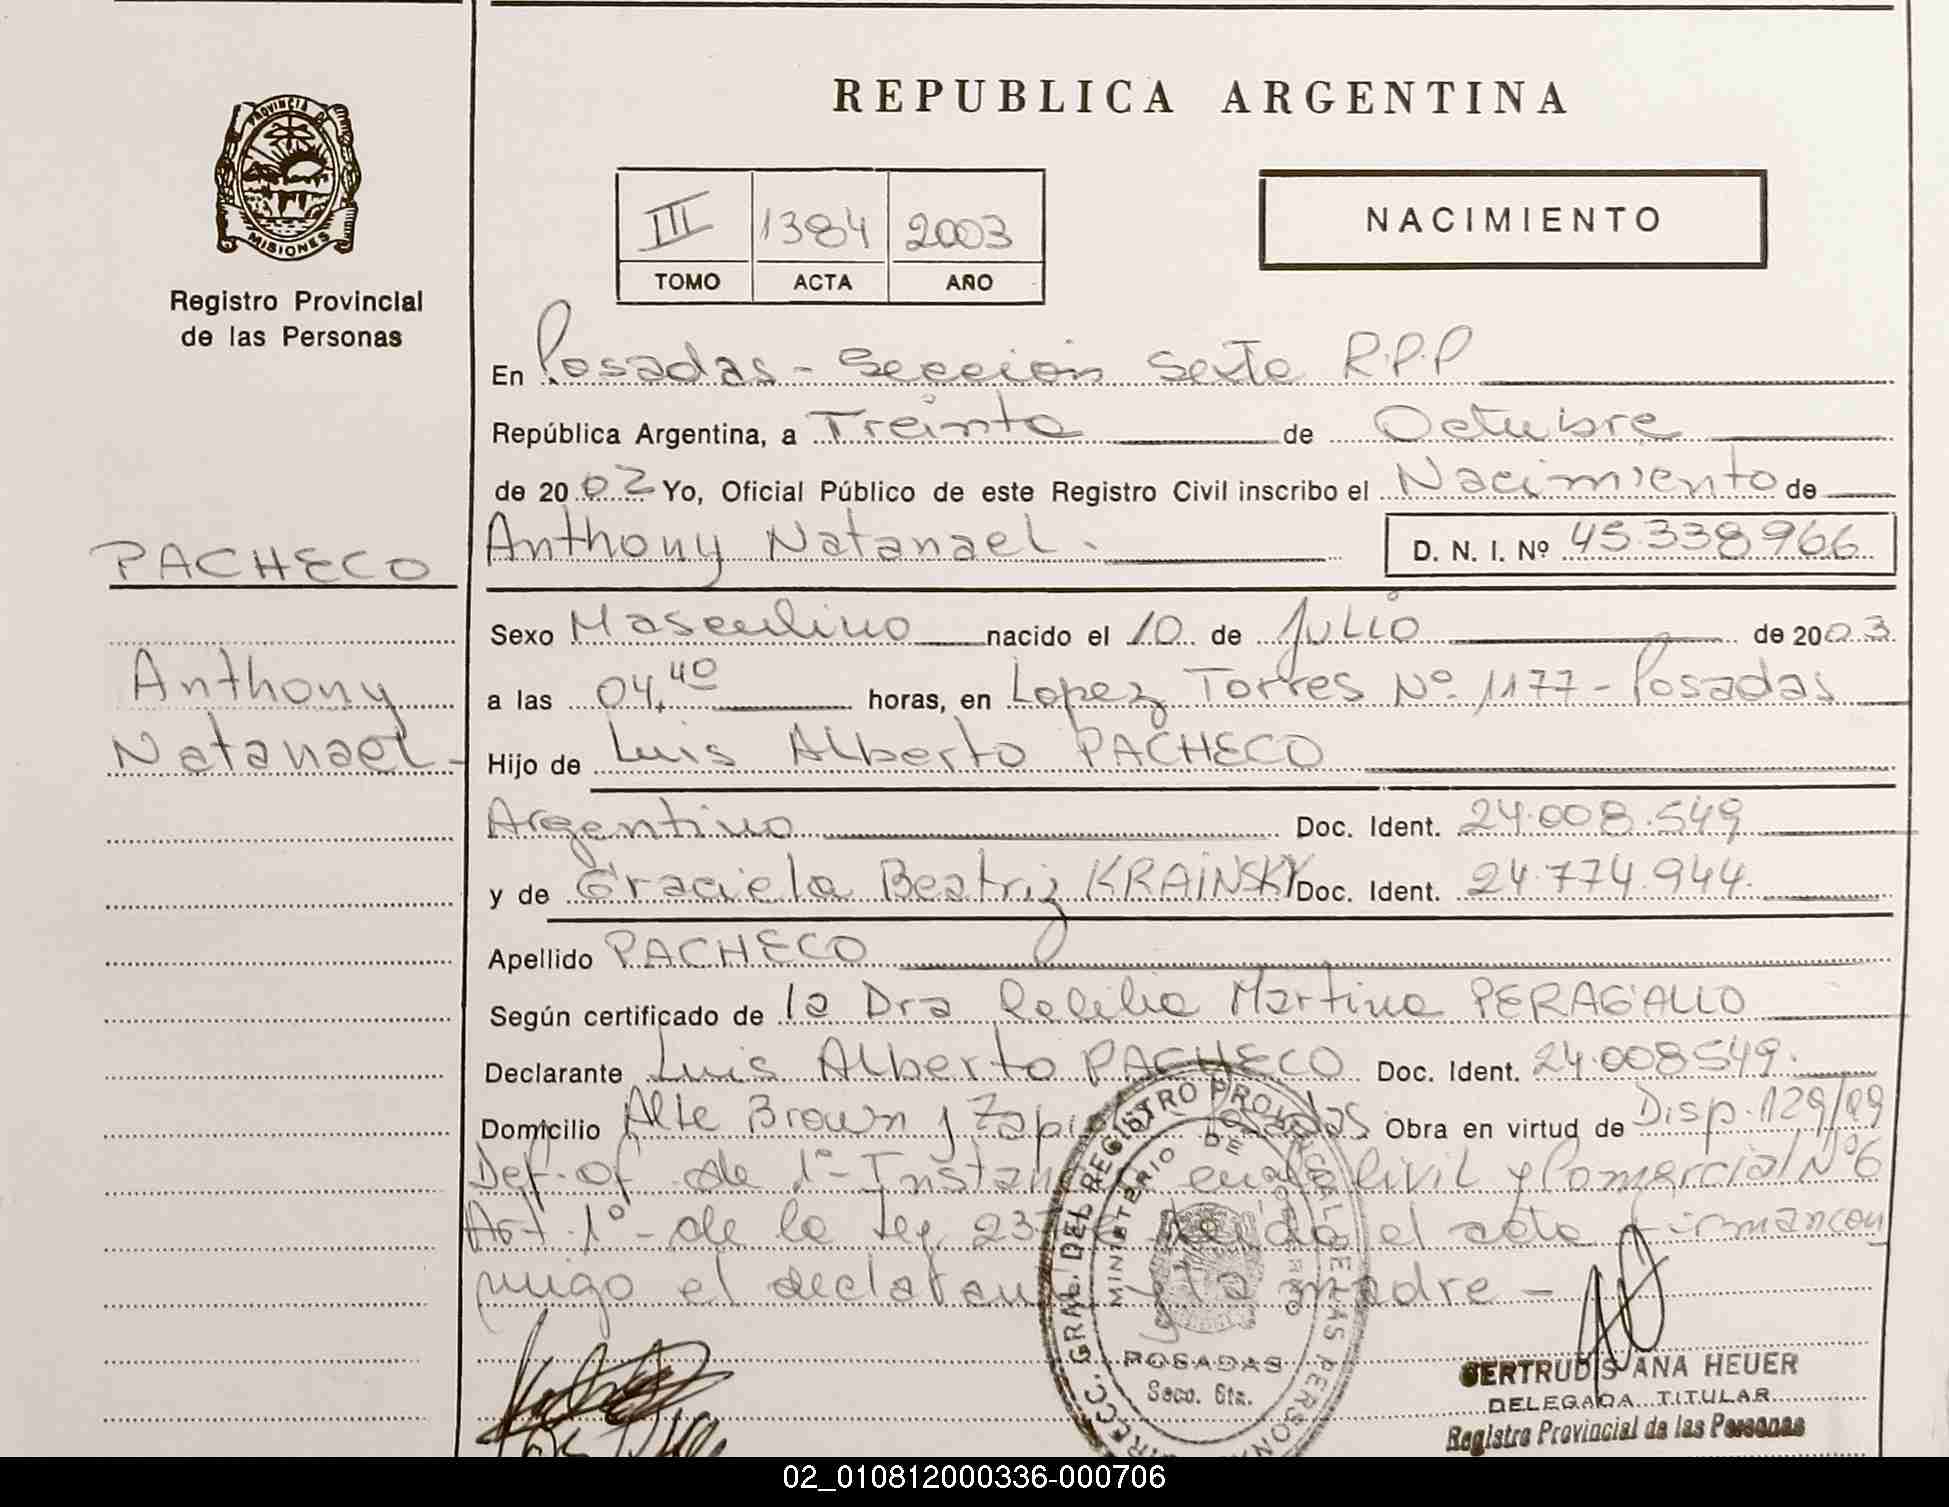 REPUBLICA ARGENTINA
PROVINCIA DE
MISIONES
Registro Provincial
de las Personas
III 1384 2003
TOMO ACTA AÑO
NACIMIENTO
En Posadas - Sección Sexta R.P.P
República Argentina, a Treinta de Octubre
de 20 03 Yo, Oficial Público de este Registro Civil inscribo el Nacimiento de
Anthony Natanael - D. N. I. Nº 45.338966
PACHECO
Anthony
Natanael -
Sexo Masculino nacido el 10 de Julio de 2003
a las 04,40 horas, en Lopez Torres Nº 1177 - Posadas
Hijo de Luis Alberto PACHECO
Argentino Doc. Ident. 24.008.549
y de Graciela Beatriz KRAINSKY Doc. Ident. 24.774.944.
Apellido PACHECO
Según certificado de la Dra Martina PERAGALLO
Declarante Luis Alberto PACHECO Doc. Ident. 24.008549.
Domicilio Alte Brown y Posadas Obra en virtud de Disp. 129/09
Def. Of. de 1º - en lo Civil y Comercial Nº 6
Art. 1º - de la Ley el acta firman con
migo el y la madre -
DIRECC. GRAL. DEL REGISTRO PROVINCIAL DE LAS PERSONAS
MINISTERIO DE GOBIERNO
POSADAS
Secc. 6ta.
GERTRUDIS ANA HEUER
DELEGADA TITULAR
Registro Provincial de las Personas
02_010812000336-000706